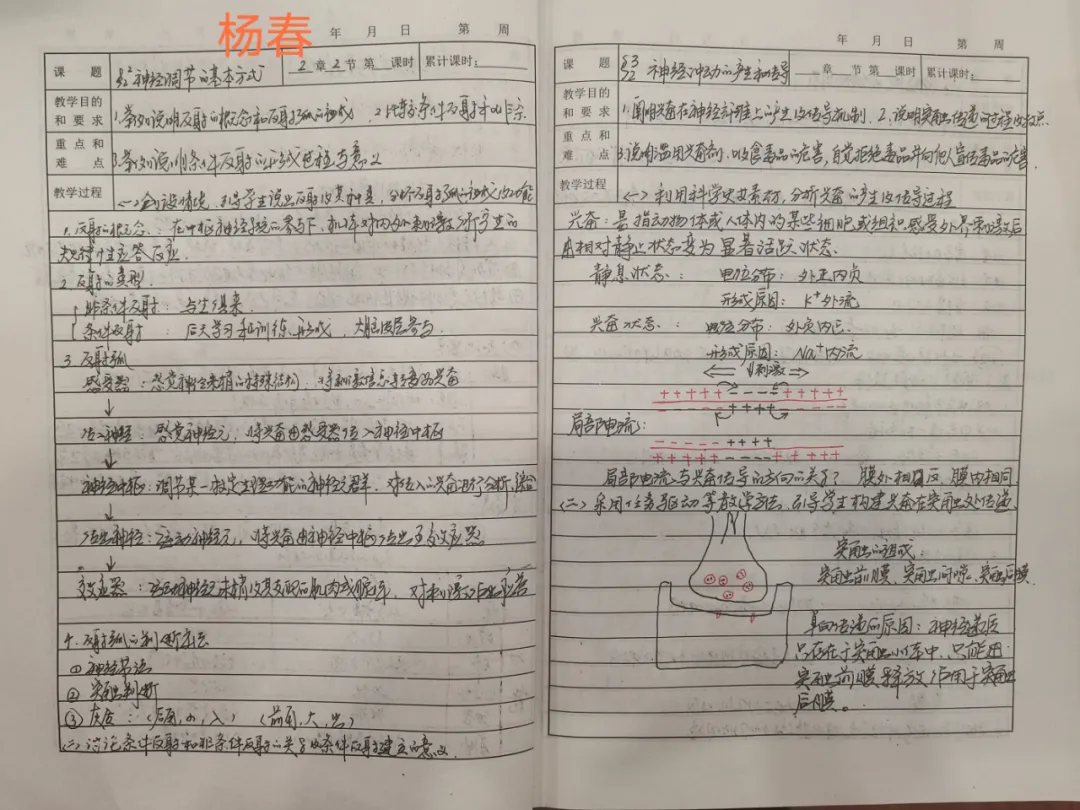 杨春
年 月 日 第 周
课题 §2 神经调节的基本方式 2章2节第 课时 累计课时:
教学目的和要求 1.举例说明反射的概念和反射弧的组成 2.比较条件反射和非条
重点和难点 3.举例说明条件反射的形成过程与意义
教学过程 (一)创设情境,引导学生说出反射及其种类,分析反射弧的组成及功能
1.反射的概念:在中枢神经系统的参与下,机体对内外刺激所产生的
规律性应答反应.
2.反射的类型
非条件反射:与生俱来.
条件反射:后天学习和训练形成,大脑皮层参与
3.反射弧
感受器:感觉神经末梢的特殊结构,
↓
传入神经:感觉神经元,将兴奋由感受器传入神经中枢
↓
神经中枢:调节某一特定生理功能的神经元群,对传入的兴奋进行分析,综合
↓
传出神经:运动神经元,将兴奋由神经中枢传出至效应器
↓
效应器:运动神经末梢及其支配的肌肉或腺体,对刺激作出应答
4.反射弧的判断方法
①神经节法
②突触判断
③灰质:(后角,小,入) (前角,大,出)
(二)讨论条件反射和非条件反射的关系及条件反射建立的意义.
年 月 日 第 周
课题 §3 神经冲动的产生和传导 章 节 第 课时 累计课时:
教学目的和要求 1.阐明兴奋在神经纤维上的产生及传导机制. 2.说明突触传递的过程及特点.
重点和难点 3.说明滥用兴奋剂、吸食毒品的危害,自觉拒绝毒品并向他人宣传毒品的危害.
教学过程 (一)利用科学史素材,分析兴奋的产生及传导过程
兴奋:是指动物体或人体内的某些细胞或组织感受外界刺激后
由相对静止状态变为显著活跃状态.
静息状态: 电位分布:外正内负
形成原因:K⁺外流
兴奋状态: 电位分布:外负内正.
形成原因:Na⁺内流
刺激
++++----++++----
--++++
局部电流:
-----++++-----
++++----+++++
局部电流与兴奋传导的方向的关系? 膜外相反,膜内相同
(二)采用任务驱动等教学方法,引导学生构建兴奋在突触处传递.
突触的组成:
突触前膜、突触间隙、突触后膜.
单向传递的原因:神经递质
只存在于突触小体中,只能由
突触前膜释放作用于突触
后膜。